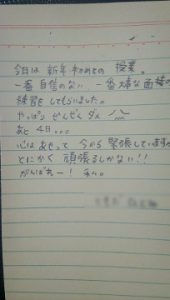 今日は 新年 初めての 授業。
一番 自信のない 一番 大事な 面接の
練習をしてもらいました。
やっぱり ぜんぜん ダメ
あと 4日...
心は あせって 今から 緊張しています
とにかく 頑張るしかない!!
がんばれー! 私。